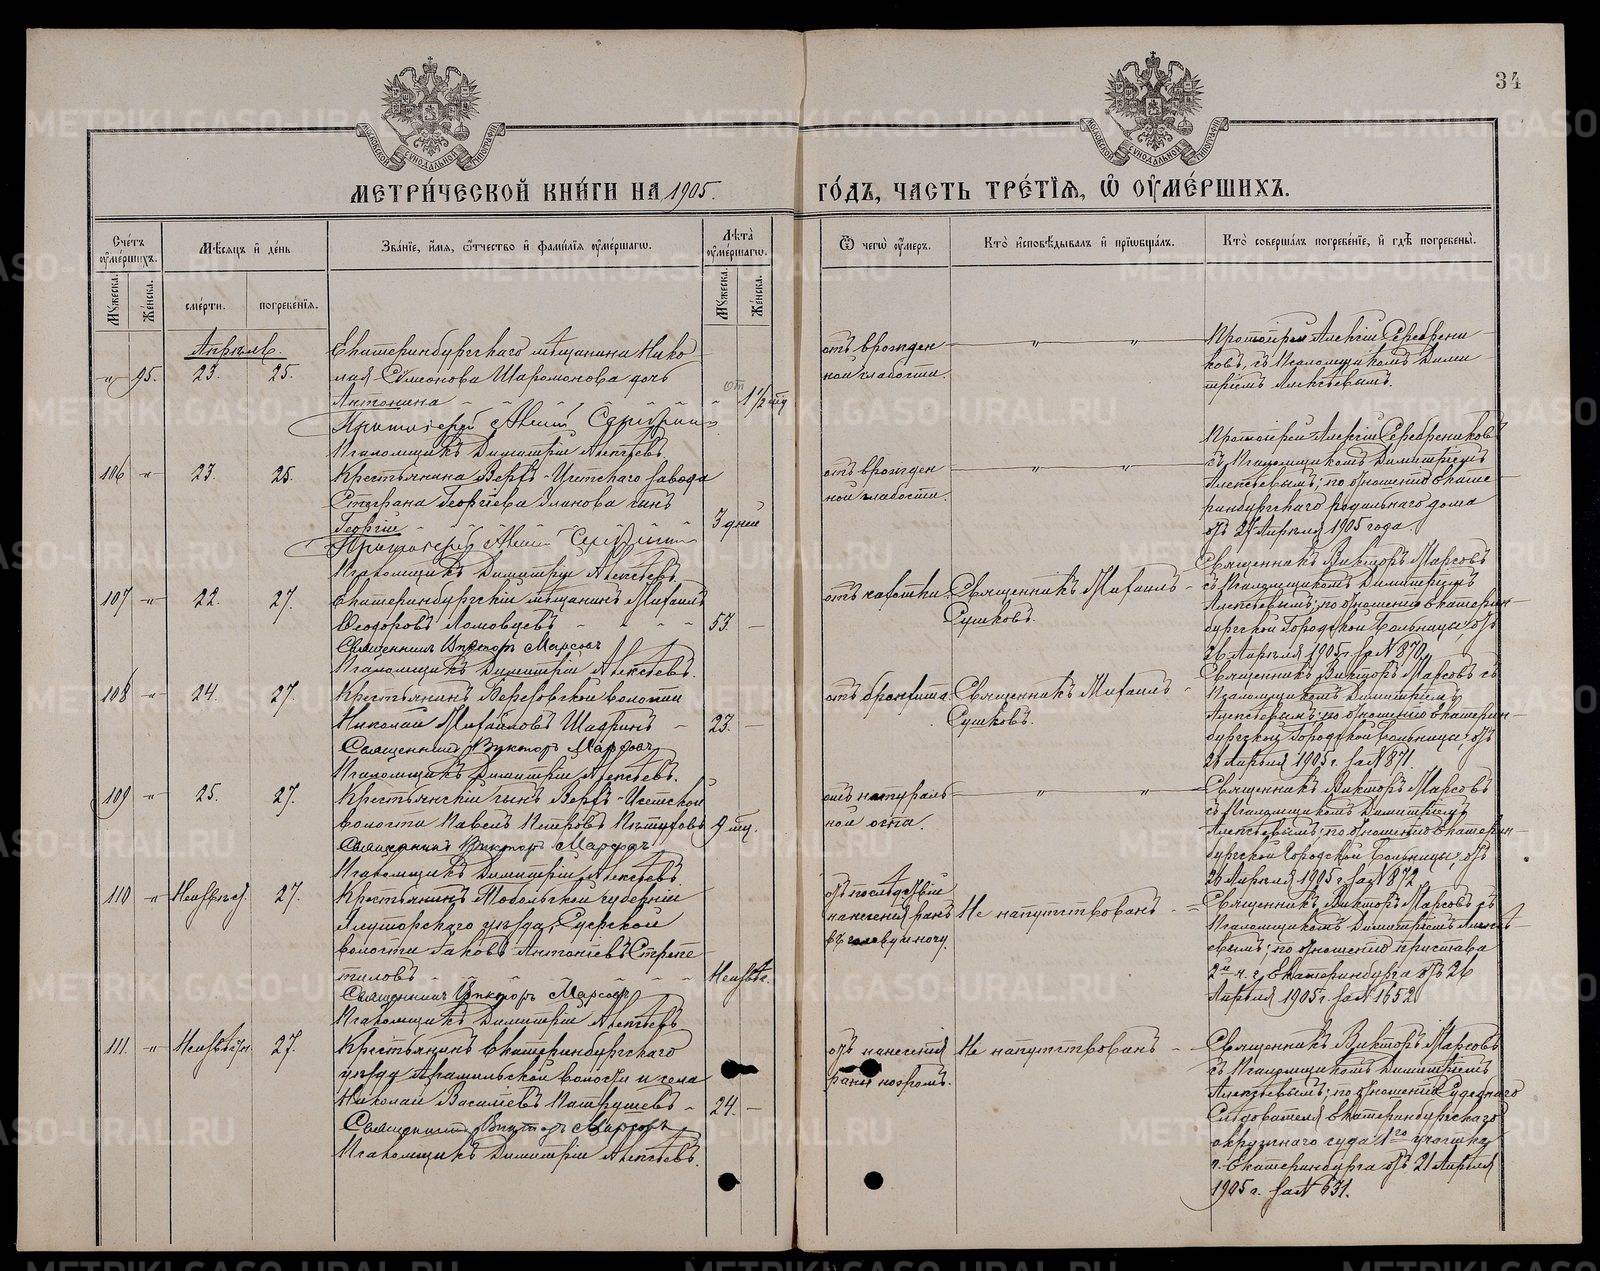 34
МЕТРИ́ЧЕСКОЙ КНИ́ГИ НА 1905.
ГО́ДЪ, ЧАСТЬ ТРЕ́ТІЯ, Ѿ ОУ҆МЕ́РШИХЪ.
Сче́тъ оу҆ме́ршихъ.
Мѣ́сяцъ и҆ де́нь
Зва́нїе, и҆́мя, ѻ҆́тчество и҆ фами́лїя оу҆ме́ршагѡ.
Лѣ́та оу҆ме́ршагѡ.
Ѿ чегѡ̀ оу҆́меръ.
Кто̀ и҆сповѣ́дывалъ и҆ прїѡбща́лъ.
Кто̀ соверша́лъ погребе́нїе, и҆ гдѣ̀ погребены̀.
Му́жеска.
Же́нска.
сме́рти.
погребе́нїя.
Му́жеска.
Же́нска.
Апрѣль.
" 95. 23. 25.
Екатеринбургскаго мѣщанина Нико
лая Симеонова Шаромонова дочь
Антонина
1 1/2 мц
отъ врожден
ной слабости.
" "
Протоіерей Алексій Серебрени
ковъ, съ Псаломщикомъ Дими
тріемъ Алексѣевымъ.
Протоіерей Алексій
Псаломщикъ Димитрій Алексѣевъ.
106 " 23. 25.
Крестьянина Верхъ-Исетскаго завода
Стефана Георгіева Уланова сынъ
Георгій
3 дней
отъ врожден
ной слабости.
" "
Протоіерей Алексій Серебрениковъ
съ Псаломщикомъ Димитріемъ
Алексѣевымъ; по отношенію Екате
ринбургскаго родильнаго дома
отъ 24 Апрѣля 1905 года.
Протоіерей Алексій
Псаломщикъ Димитрій Алексѣевъ.
107 " 22. 27.
Екатеринбургскій мѣщанинъ Михаилъ
Ѳеодоровъ Ломовцевъ
53.
Священникъ Викторъ Марсовъ
Псаломщикъ Димитрій Алексѣевъ.
Священникъ Михаилъ
Сушковъ.
Священникъ Викторъ Марсовъ
съ Псаломщикомъ Димитріемъ
Алексѣевымъ; по отношенію Екатерин
бургской Городской больницы, отъ
26 Апрѣля 1905 г. за № 870.
108 " 24. 27.
Крестьянинъ Березовской волости
Николай Михайловъ Шадринъ
23.
Священникъ Викторъ Марсовъ
Псаломщикъ Димитрій Алексѣевъ.
отъ бронхита.
Священникъ Михаилъ
Сушковъ.
Священникъ Викторъ Марсовъ съ
Псаломщикомъ Димитріемъ
Алексѣевымъ; по отношенію Екатерин
бургской Городской больницы, отъ
26 Апрѣля 1905 г. за № 871.
109 " 25. 27.
Крестьянскій сынъ Верхъ-Исетской
волости Павелъ Петровъ
9 мц.
Священникъ Викторъ Марсовъ
Псаломщикъ Димитрій Алексѣевъ
отъ натураль
ной оспы.
" "
Священникъ Викторъ Марсовъ
съ Псаломщикомъ Димитріемъ
Алексѣевымъ; по отношенію Екатерин
бургской Городской больницы, отъ
26 Апрѣля 1905 г. за № 872
110 " Неизвѣст. 27.
Крестьянинъ Тобольской губерніи
Ялуторскаго уѣзда, Суерской
волости Іаковъ Антоніевъ Стрепе
тиловъ
Неизвѣст.
Священникъ Викторъ Марсовъ
Псаломщикъ Димитрій Алексѣевъ
отъ послѣдствій
нанесенія ранъ
въ голову и ногу.
Не напутствованъ
Священникъ Викторъ Марсовъ съ
Псаломщикомъ Димитріемъ Алексѣ
евымъ; по отношенію пристава
2й ч. г. Екатеринбурга отъ 26
Апрѣля 1905 г. за № 1652
111. " Неизвѣстн. 27.
Крестьянинъ Екатеринбургскаго
уѣзда Арамильской волости и села
Николай Василіевъ Патрушевъ
24.
Священникъ Викторъ Марсовъ
Псаломщикъ Димитрій Алексѣевъ.
отъ нанесенія
раны ножомъ.
Не напутствованъ
Священникъ Викторъ Марсовъ
съ Псаломщикомъ Димитріемъ
Алексѣевымъ; по отношенію Судебнаго
Слѣдователя Екатеринбургскаго
окружнаго суда 1го участка
г. Екатеринбурга отъ 21 Апрѣля
1905 г. за № 631.
METRIKI.GASO-URAL.RU